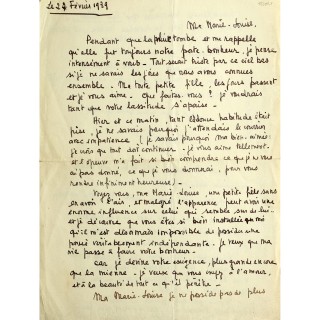 Le 24 Février 1939
Ma Marie-Louise.
Pendant que la pluie tombe et me rappelle
qu'elle fut toujours notre porte-bonheur, je pense
intensément à vous. Tout serait triste par ce ciel bas
si je ne savais les joies que nous avons connues
ensemble. Ma toute petite fille, les jours passent
et je vous aime. Que faites-vous ? je voudrais
tant que votre lassitude s'apaise.
Hier et ce matin, tant l'habitude était
prise, je ne savais pourquoi j'attendais le courrier
avec impatience ! je savais pourquoi ma bien-aimée :
je crois que tout doit continuer. je vous aime tellement.
et l'épreuve m'a fait si bien comprendre ce que je ne vous
ai pas donné, ce que je vous donnerai, pour vous
rendre infiniment heureuse !
Voyez vous, ma Marie-Louise, une petite fille sans
en avoir l'air, et malgré l'apparence peut avoir une
énorme influence sur celui qui semble sûr de lui.
et je déclare que vous êtes si bien installée en moi
qu'il m'est désormais impossible de posséder une
pensée véritablement indépendante. je veux que ma
vie passe à faire votre bonheur.
car je devine votre exigence, plus grande encore
que la mienne. je veux que vous croyez à l'amour,
et à la beauté de tout ce qu'il pénètre.
Ma Marie-Louise je ne possède pas de plus